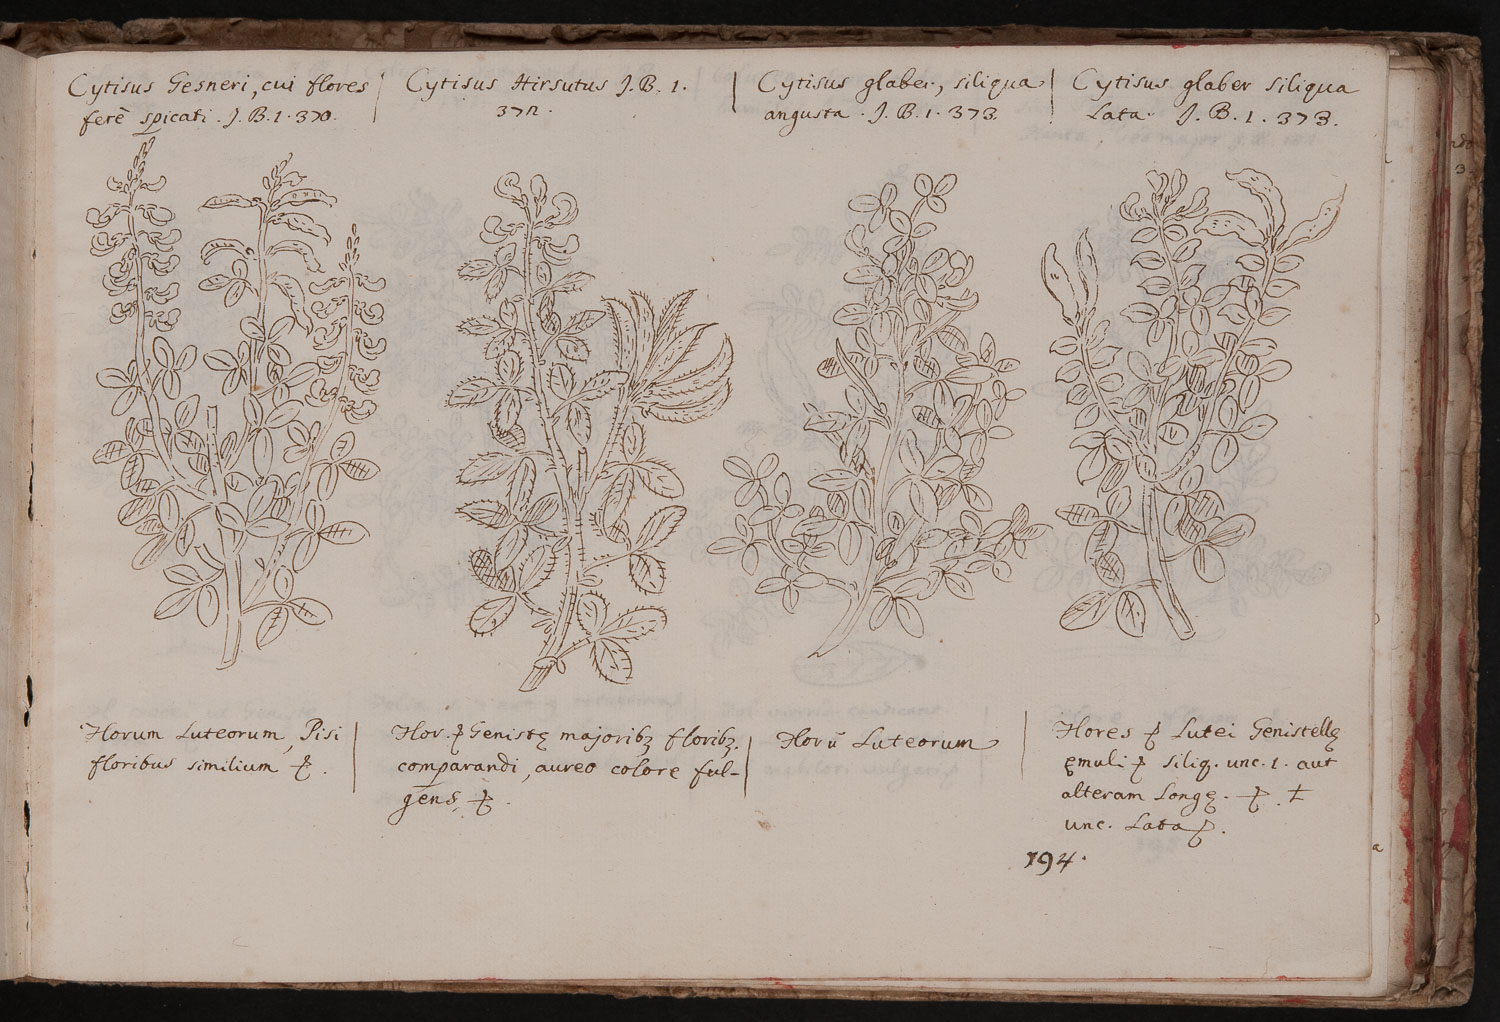 Cytisus Gesneri, cui flores
ferè spicati. J.B.1.370.
Cytisus Hirsutus J.B.1.
372.
Cytisus glaber, siliqua
angusta. J.B.1.373
Cytisus glaber siliqua
Lata. J.B.1.373.
Florum Luteorum, Pisi
floribus similium
Flor. Genistę majoribꝫ floribꝫ.
comparandi, aureo colore ful-
gens,
Florū Luteorum
Flores Lutei Genistellę
ęmuli siliq. unc. 1. aut
alteram Longę.
unc. Lata
194.